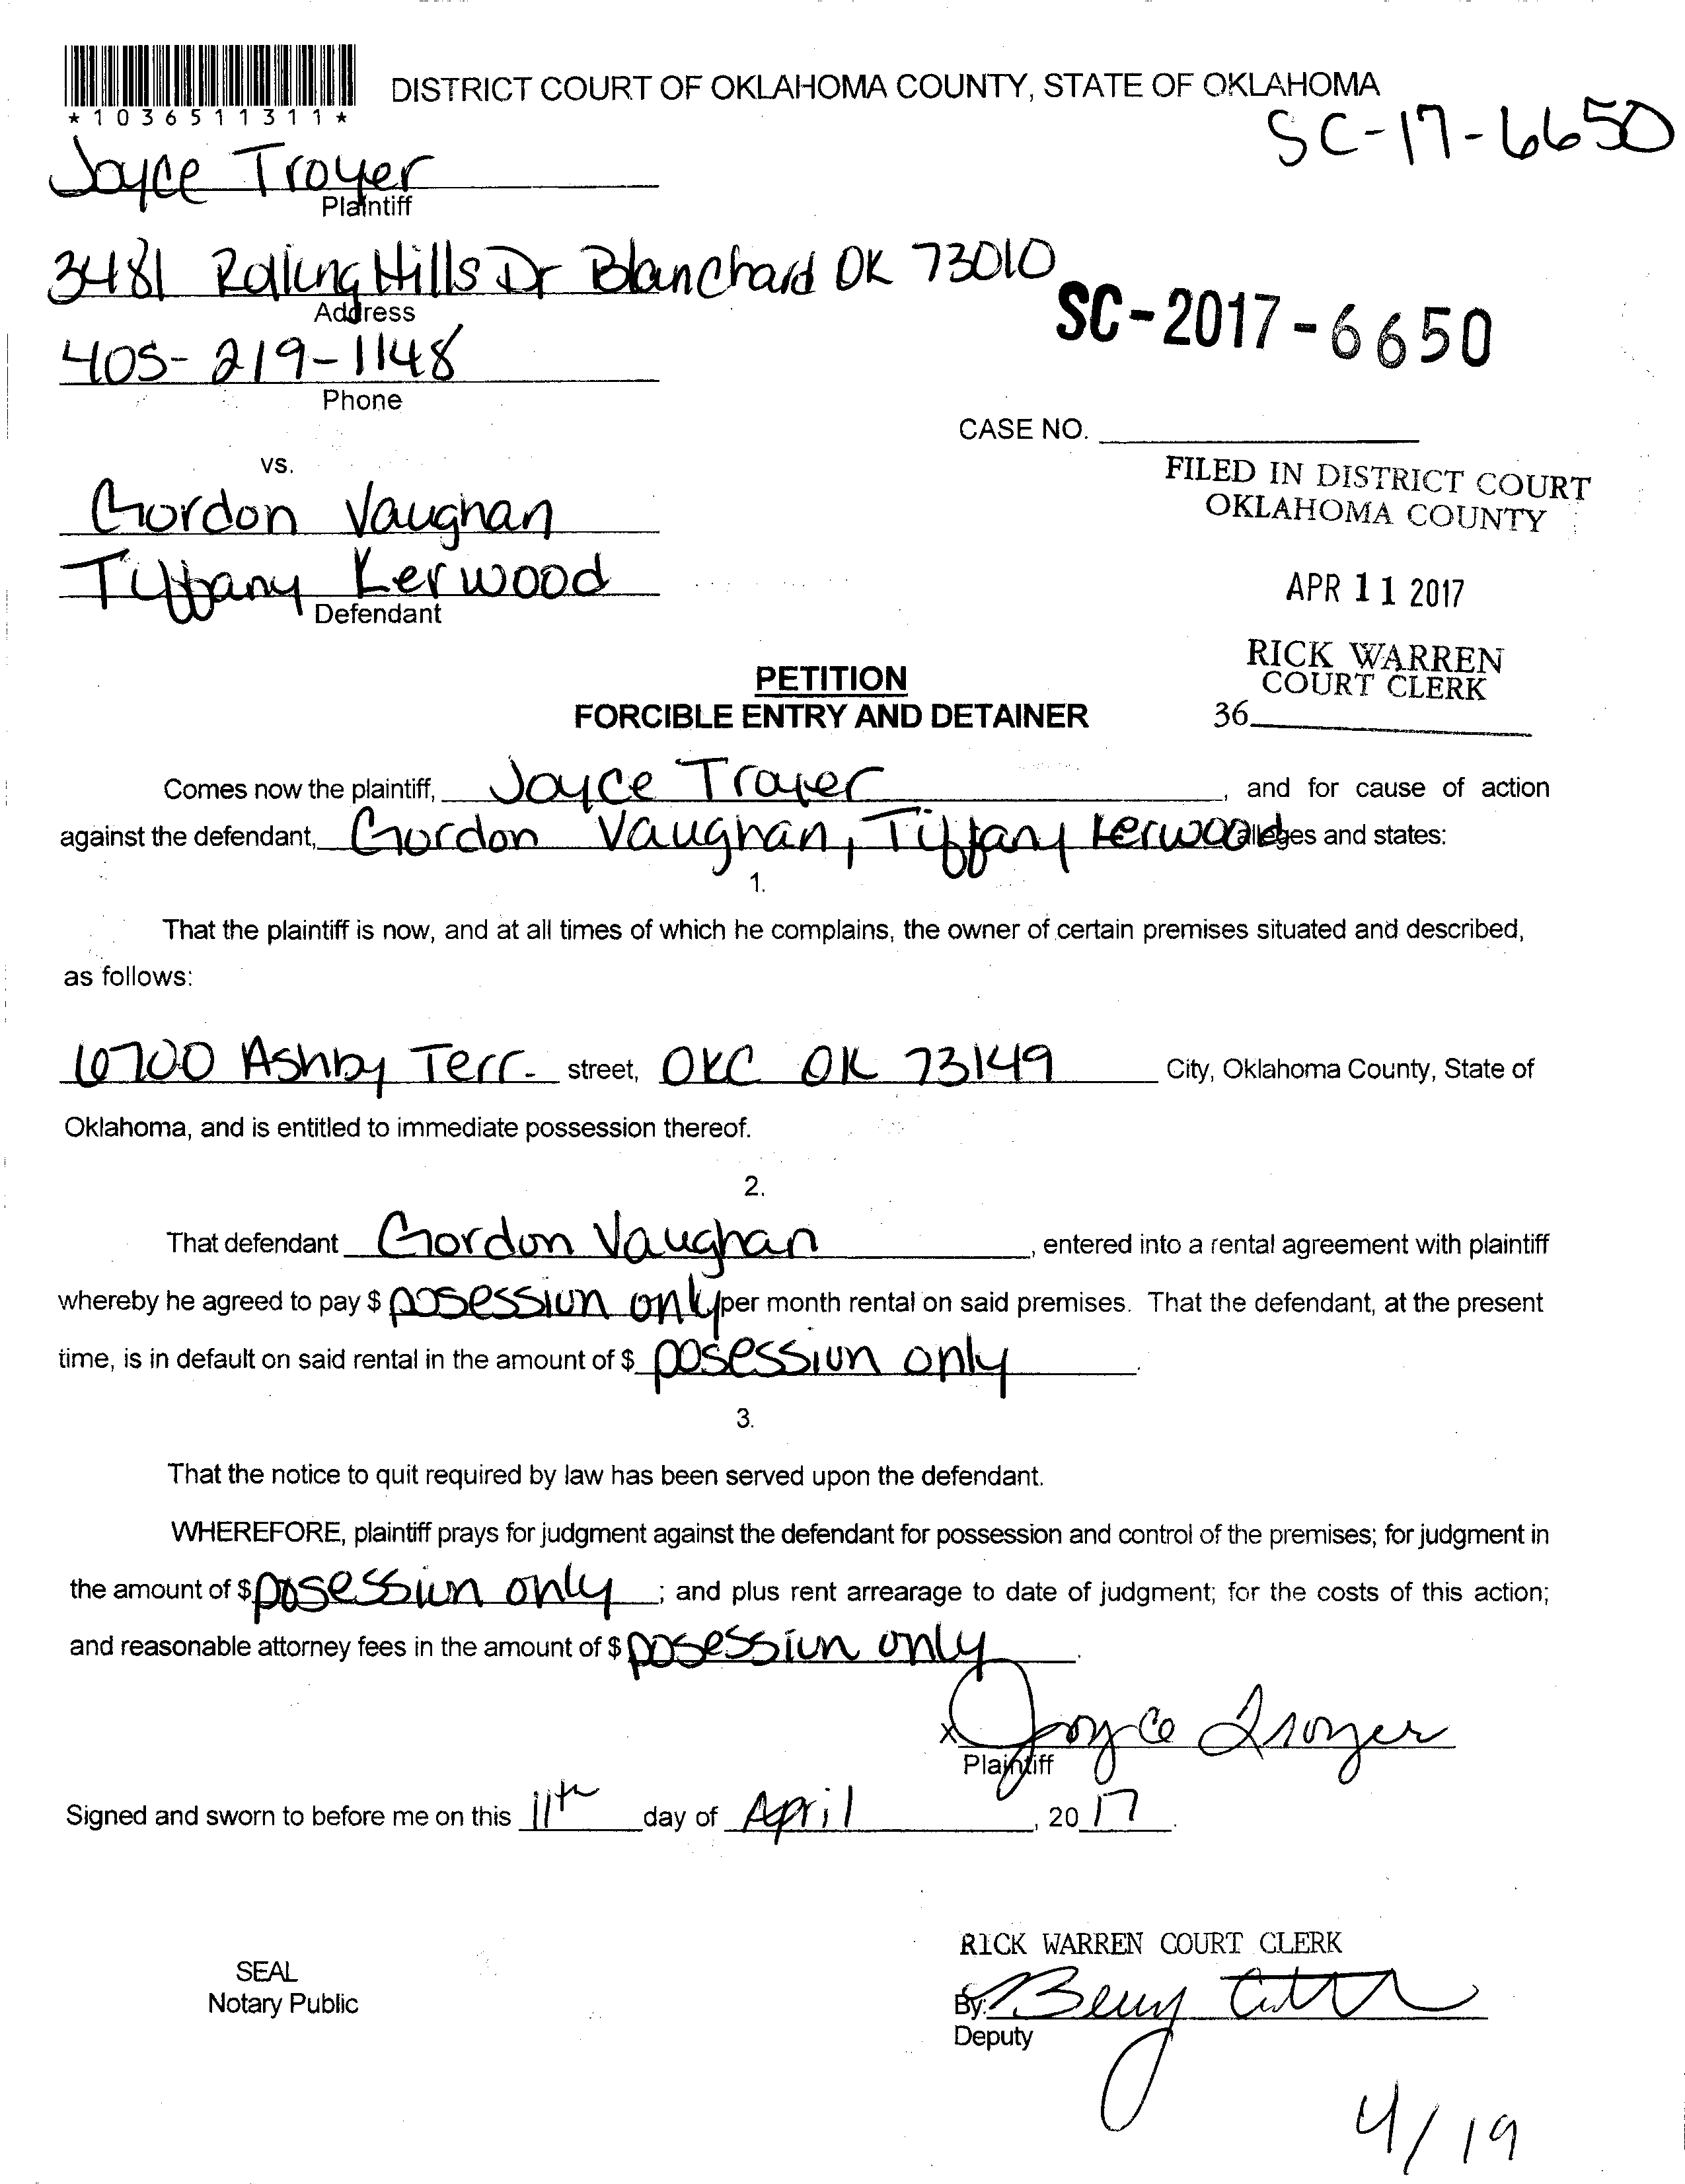 DISTRICT COURT OF OKLAHOMA COUNTY, STATE OF OKLAHOMA
*1036511311*
SC-17-6650
Joyce Troyer
Plaintiff
3481 Rolling Hills Dr Blanchard OK 73010
Address
SC-2017-6650
405-219-1148
Phone
CASE NO.
vs.
FILED IN DISTRICT COURT
OKLAHOMA COUNTY
Gordon Vaughan
Tiffany Kerwood
Defendant
APR 11 2017
RICK WARREN
COURT CLERK
36
PETITION
FORCIBLE ENTRY AND DETAINER
Comes now the plaintiff, Joyce Troyer, and for cause of action
against the defendant, Gordon Vaughan, Tiffany Kerwood alleges and states:
1.
That the plaintiff is now, and at all times of which he complains, the owner of certain premises situated and described,
as follows:
6700 Ashby Terr. street, OKC OK 73149 City, Oklahoma County, State of
Oklahoma, and is entitled to immediate possession thereof.
2.
That defendant Gordon Vaughan, entered into a rental agreement with plaintiff
whereby he agreed to pay $ posession only per month rental on said premises. That the defendant, at the present
time, is in default on said rental in the amount of $ posession only.
3.
That the notice to quit required by law has been served upon the defendant.
WHEREFORE, plaintiff prays for judgment against the defendant for possession and control of the premises; for judgment in
the amount of $ posession only; and plus rent arrearage to date of judgment; for the costs of this action;
and reasonable attorney fees in the amount of $ posession only.
X Joyce Troyer
Plaintiff
Signed and sworn to before me on this 11th day of April, 2017.
RICK WARREN COURT CLERK
SEAL
Notary Public
By:
Deputy
4/19